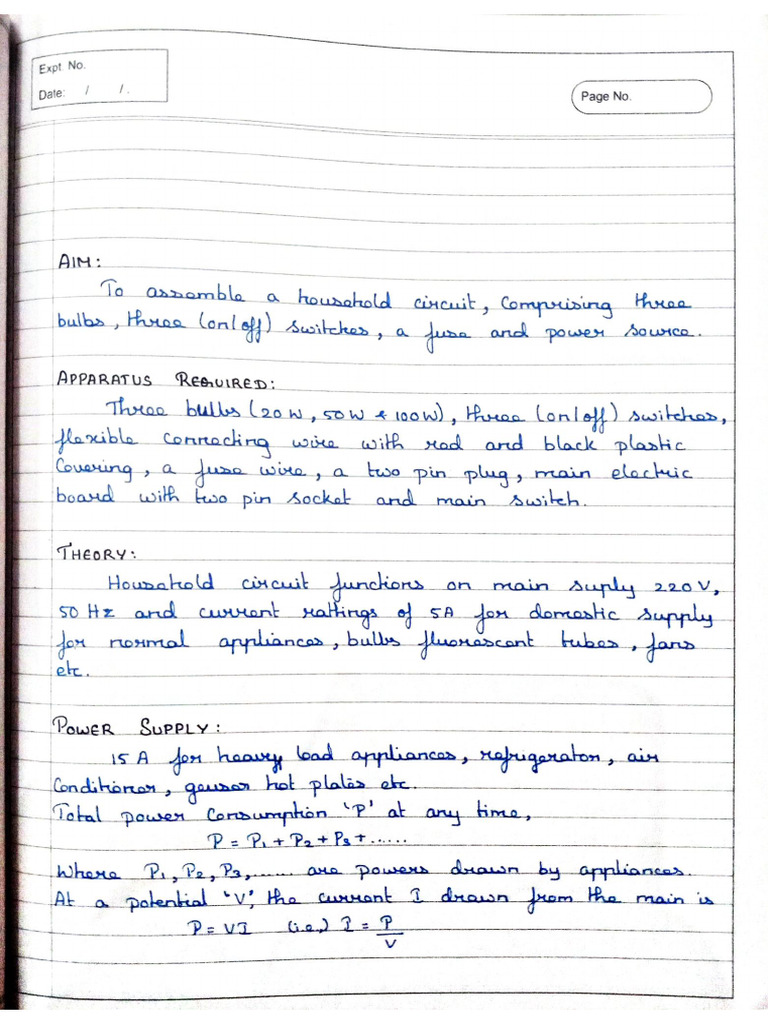 Expt. No.
Date: / / .
Page No.
AIM:
To assemble a household circuit, comprising three
bulbs, three (on/off) switches, a fuse and power source.
APPARATUS REQUIRED:
Three bulbs (20W, 50W & 100W), three (on/off) switches,
flexible connecting wire with red and black plastic
covering, a fuse wire, a two pin plug, main electric
board with two pin socket and main switch.
THEORY:
Household circuit functions on main suply 220V,
50 Hz and current rattings of 5A for domestic supply
for normal appliances, bulbs fluorescent tubes, fans
etc.
POWER SUPPLY:
15 A for heavy load appliances, refrigerator, air
conditioner, geuser hot plates etc.
Total power consumption 'P' at any time,
P = P₁ + P₂ + P₃ + ......
Where P₁, P₂, P₃, ...... are powers drawn by appliances.
At a potential 'V', the current I drawn from the main is
P = VI (i.e.,) I = P/V